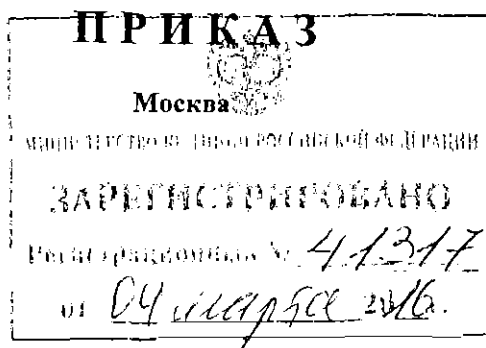 ПРИКАЗ
Москва
МИНИСТЕРСТВО ЮСТИЦИИ РОССИЙСКОЙ ФЕДЕРАЦИИ
ЗАРЕГИСТРИРОВАНО
Регистрационный № 41317
от 04 марта 2016.